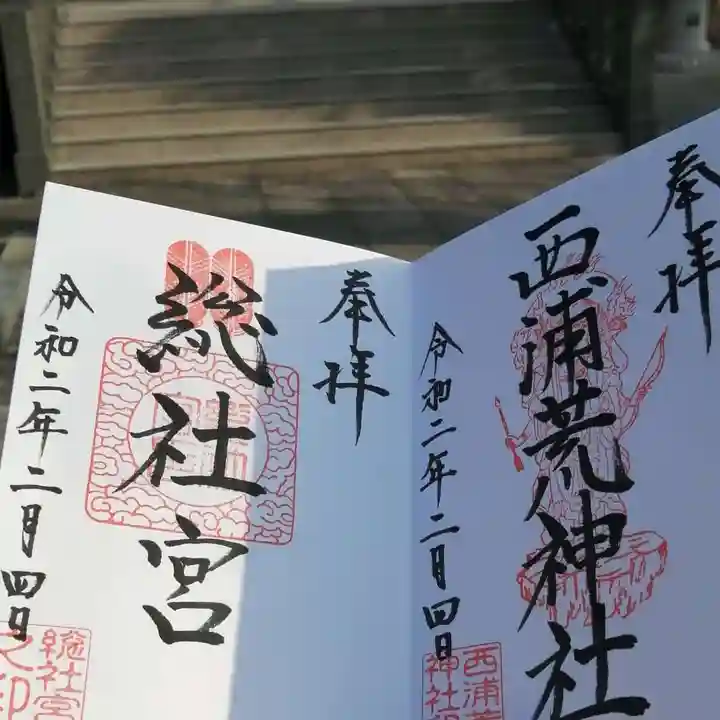 奉拝
西浦荒神社
令和二年二月四日
西浦荒
神社
奉拝
総社宮
令和二年二月四日
総社宮
之印